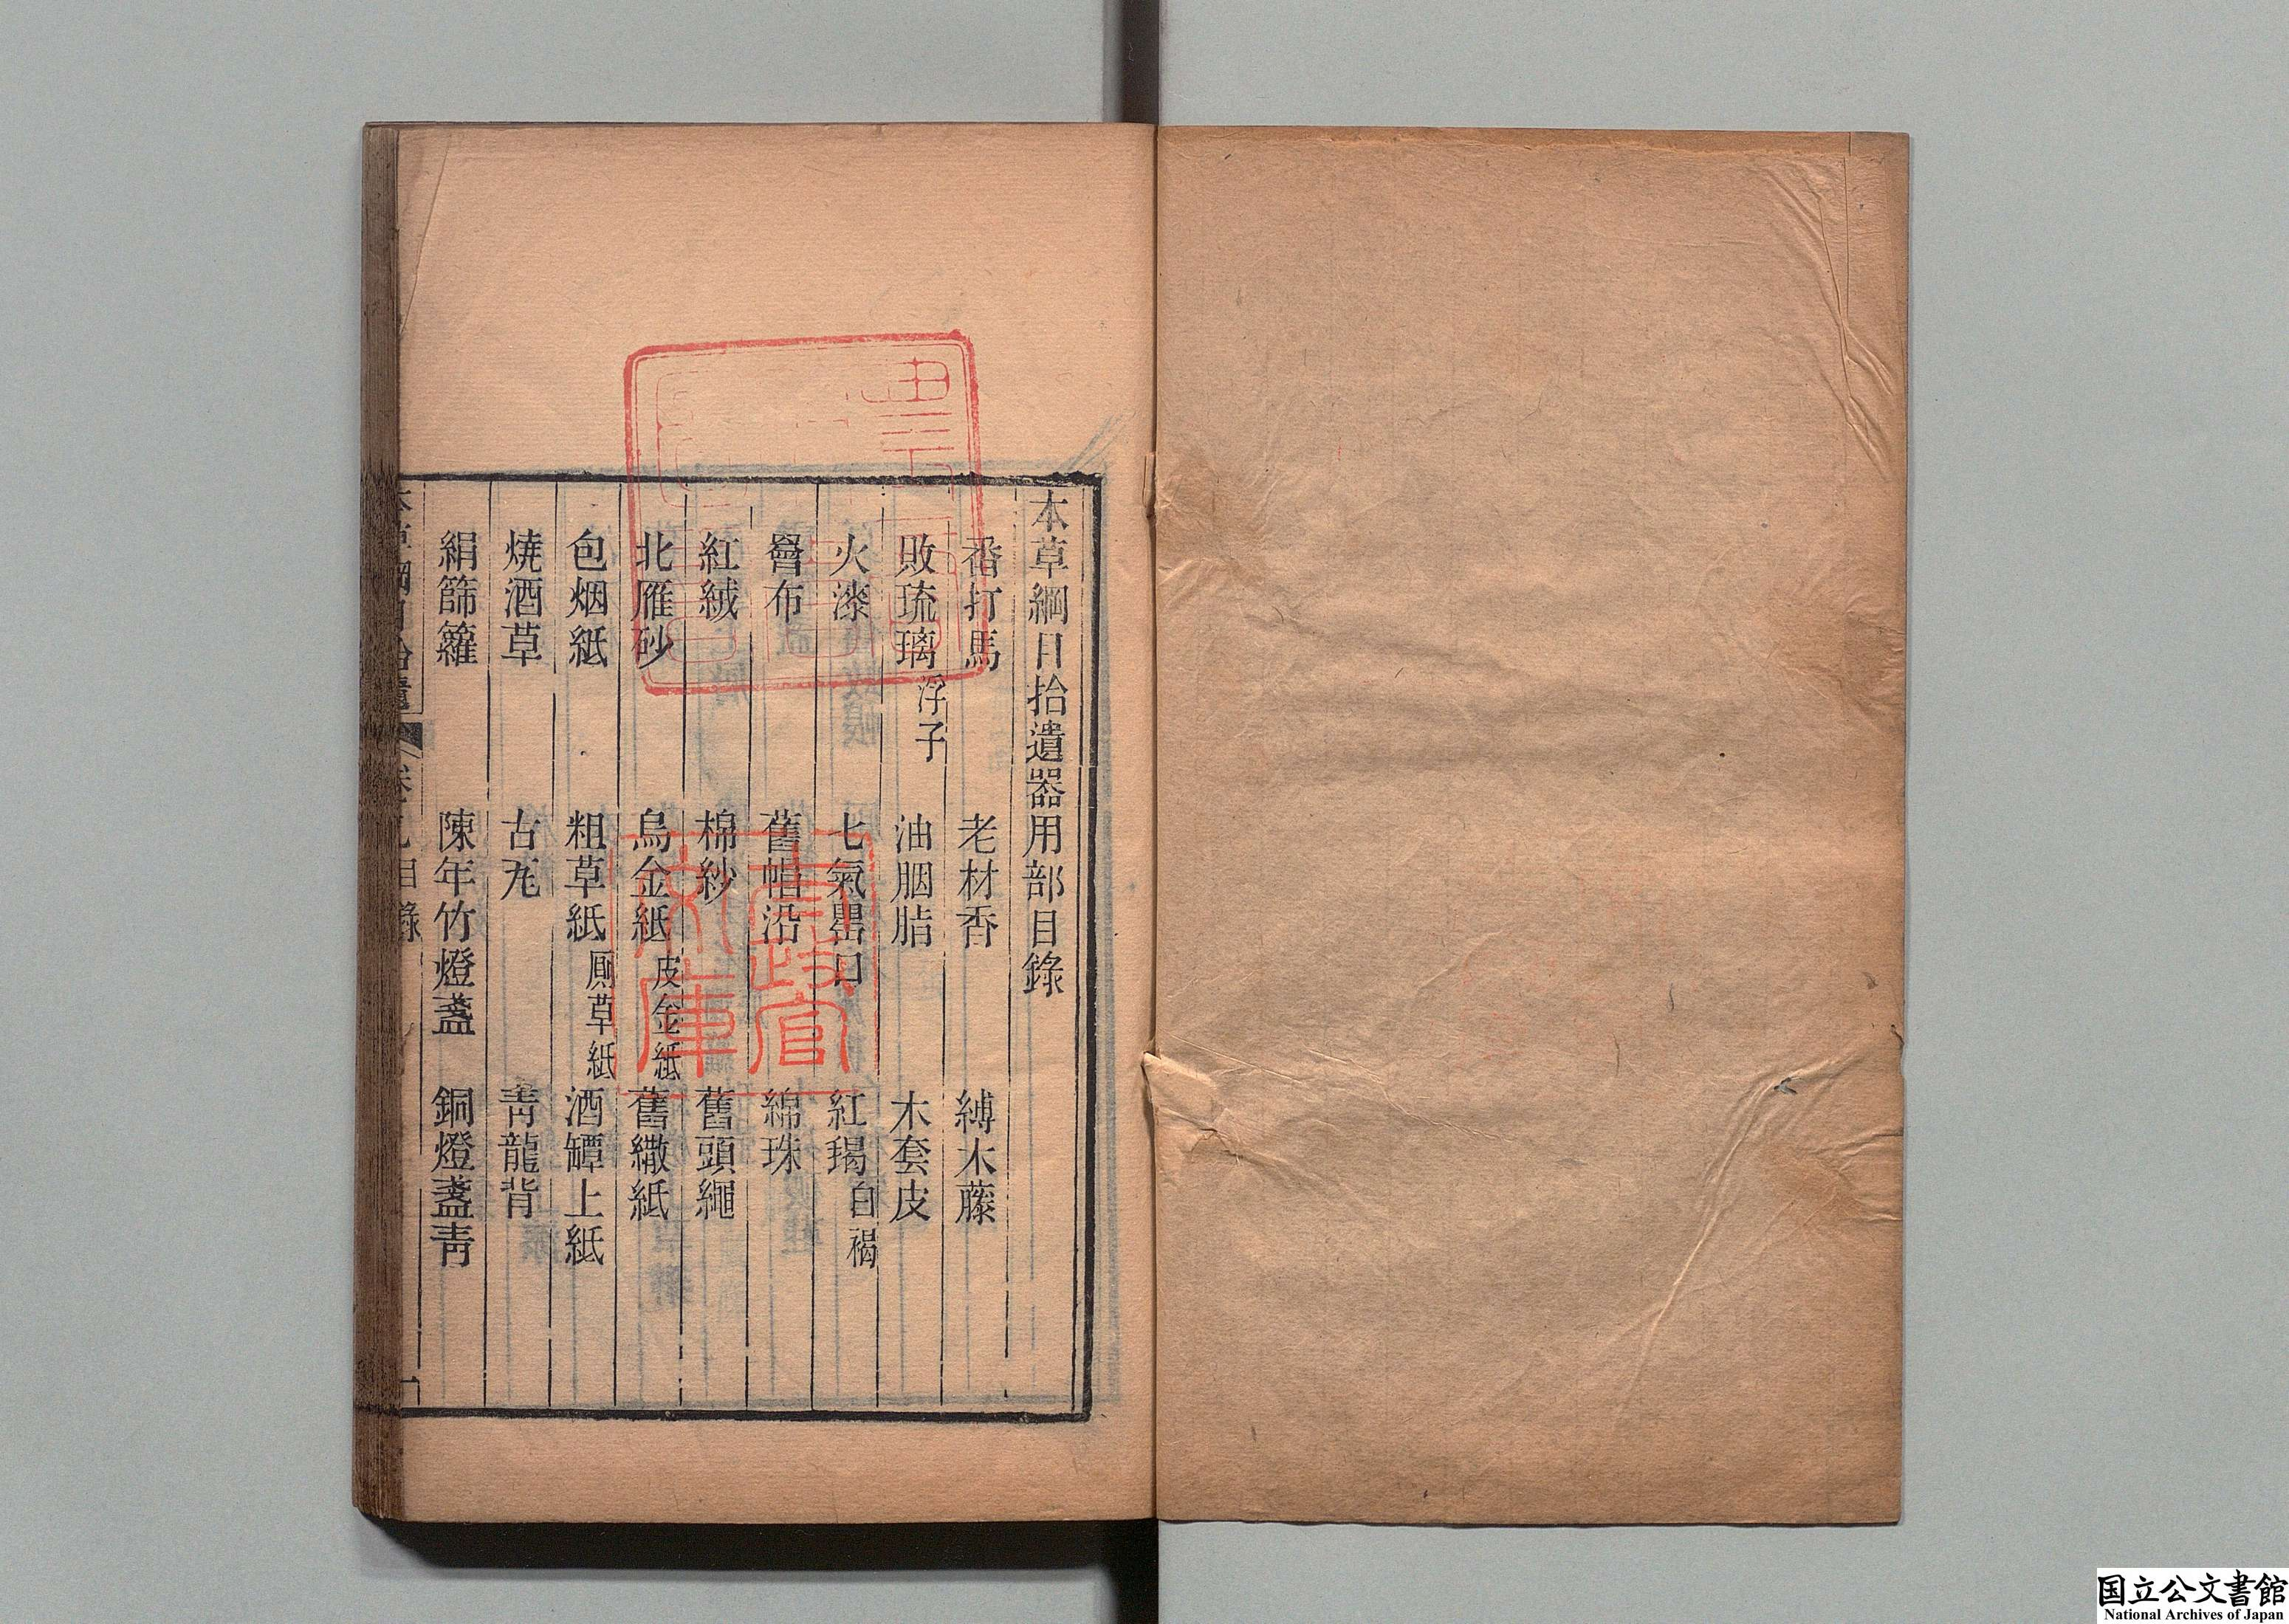 本草綱目拾遺器用部目錄
番打馬 老材香 縛木藤
敗琉璃 浮子 油胭脂 木套皮
火漆 七氣罌口 紅毼 白褐
罾布 舊帽沿 綿珠
紅絨 棉紗 舊頭繩
北雁砂 烏金紙 皮金紙 舊繖紙
包烟紙 粗草紙 厠草紙 酒罈上紙
燒酒草 古 青龍背
絹篩籮 陳年竹燈盞 銅燈盞青
本草綱目拾遺 卷九目錄 一
日本政府圖書
太政官文庫
国立公文書館
National Archives of Japan